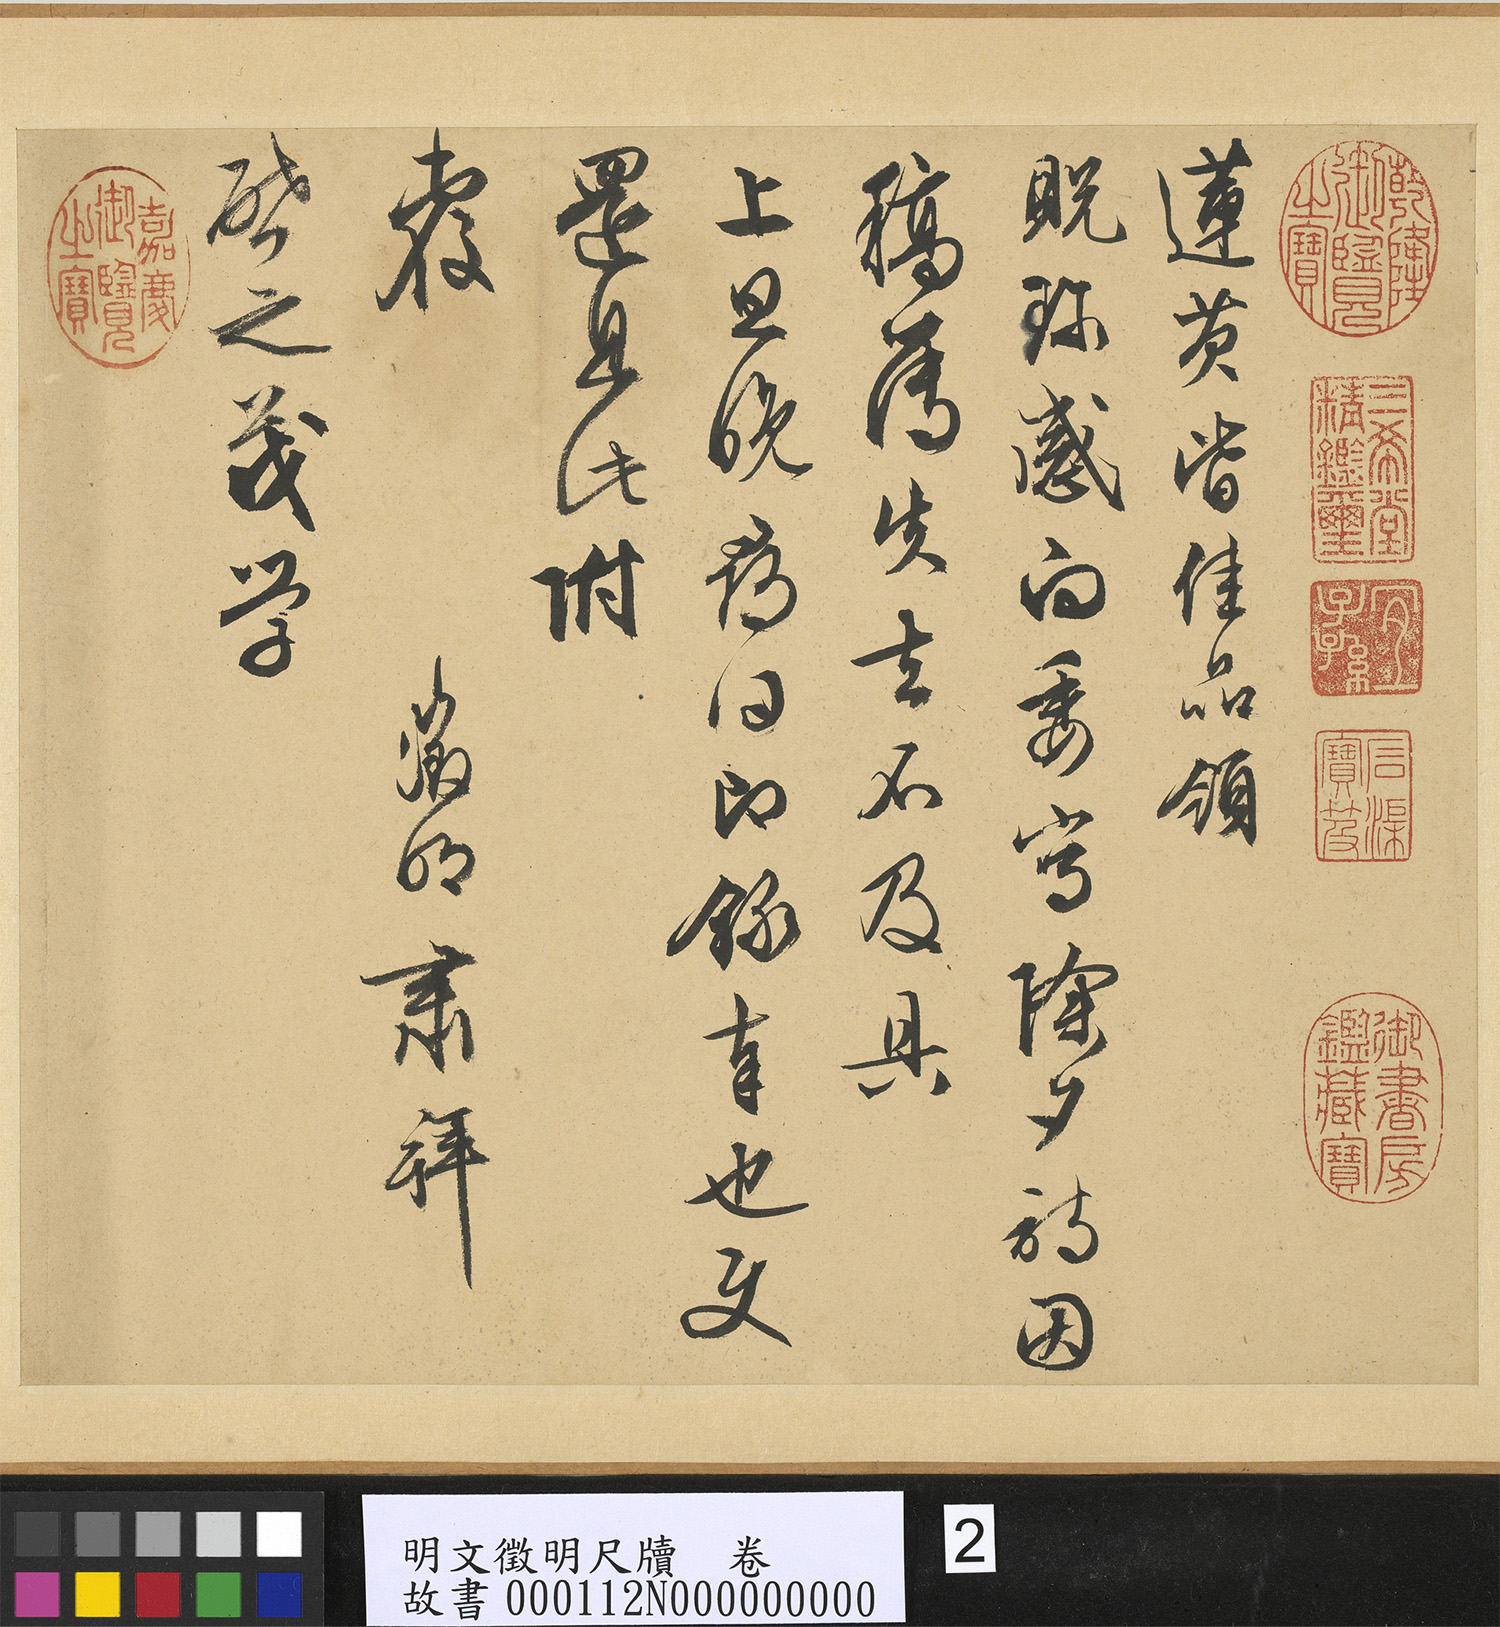 乾隆御覽之寶
三希堂精鑑璽
宜子孫
石渠寶笈
御書房鑑藏寶
蓮茨皆佳品領
貺珎感向委寫除夕詩因
稿簿失去不及具
上旦晚即錄奉也使
還具此附
覆 徵明肅拜
啓之茂學
嘉慶御覽之寶
明文徵明尺牘 卷
故書 000112N000000000
2